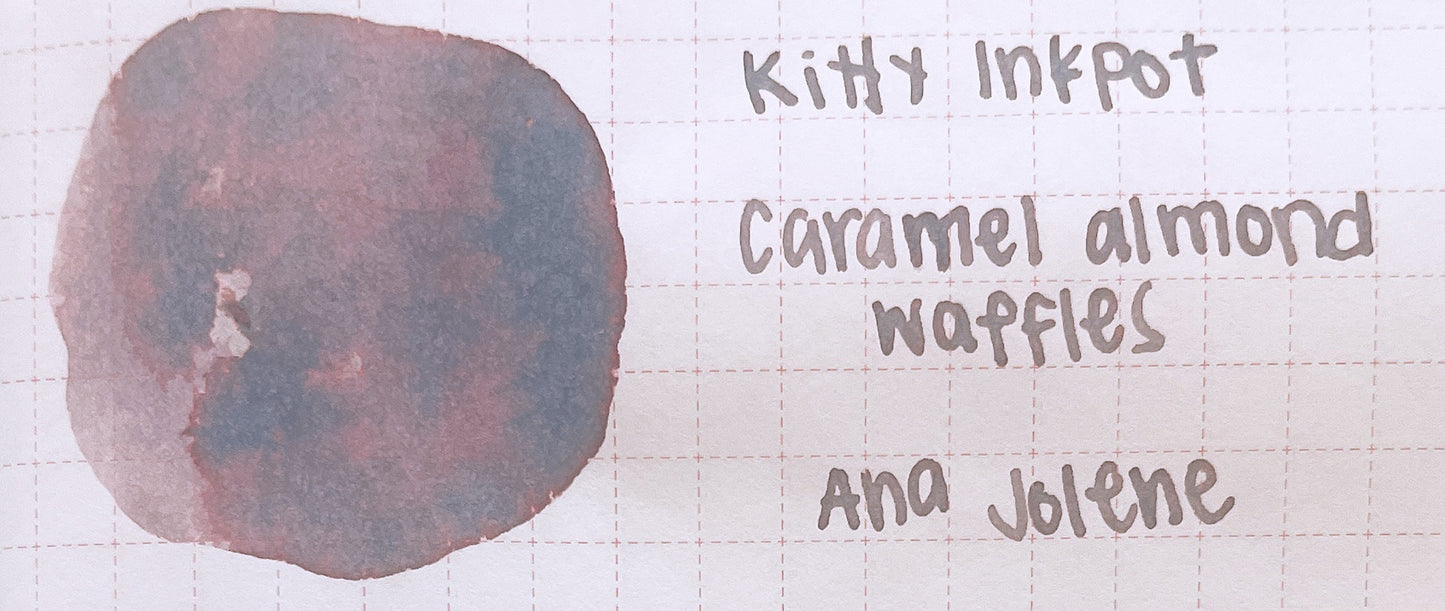 Kitty Inkpot
Caramel almond
waffles
Ana Jolene